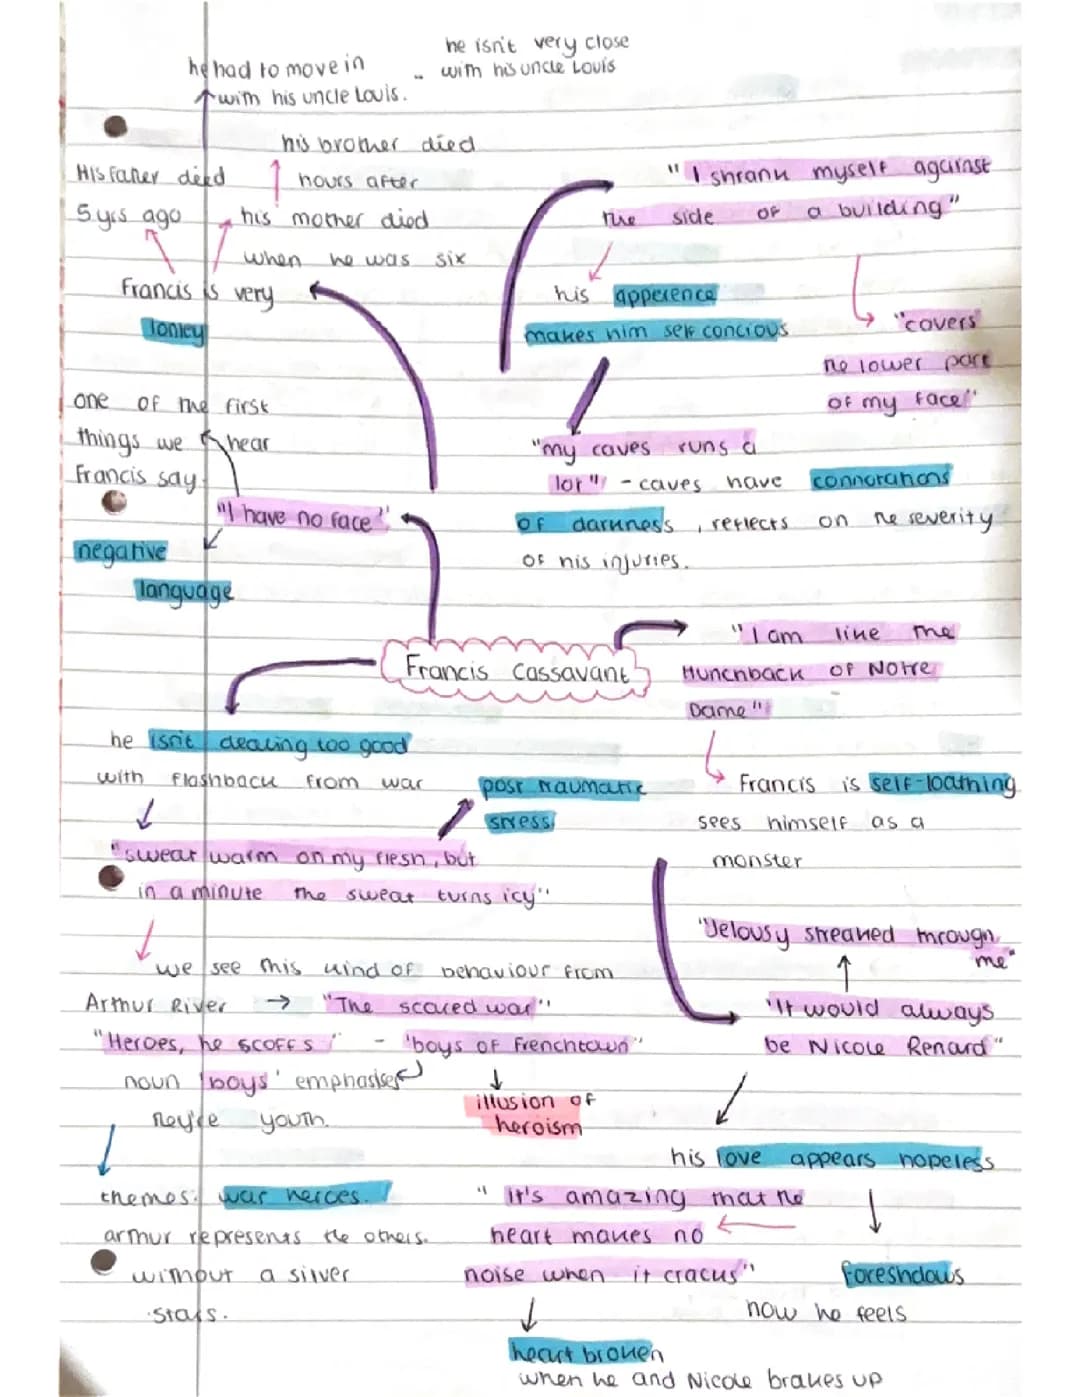 he isn't very close
with his uncle Louis
he had to move in
with his uncle Louis.
his brother died
hours after
his mother died
when he was six
His father died
5 yrs ago
Francis is very
lonley
"I shrank myself against
the side of a building"
his apperence
makes him self concious
"covers
the lower part
of my face"
"my caves runs a
lot" - caves have connorations
of darkness, reflects on the severity
of his injuries.
one of the first
things we hear
Francis say
"I have no face"
negative
language
Francis Cassavant
"I am like the
Hunchback of Notre
Dame"
Francis is self-loathing
sees himself as a
monster
he isn't dealing too good
with flashback from war
post traumatic
stress
"sweat warm on my flesh, but
in a minute the sweat turns icy"
we see this kind of behaviour from
Arthur River → "The scared war"
"Heroes, he scoffs" - 'boys of Frenchtown"
noun 'boys' emphasises
they're youth.
illusion of
heroism
themes: war heroes.
arthur represents the others.
without a silver
stars.
"Jelousy streaked through
me"
"It would always
be Nicole Renard"
his love appears hopeless
foreshdows
how he feels
"It's amazing that the
heart makes no
noise when it cracks"
heart broken
when he and Nicole brakes up